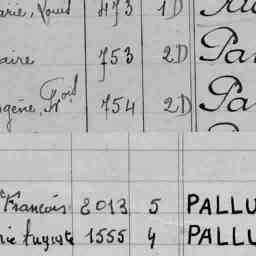 arie, Louis 473 1D
aire 753 2D Pa
ugène, Fois 754 2D Pa
François 2013 5 PALLU
rie Auguste 1555 4 PALLU